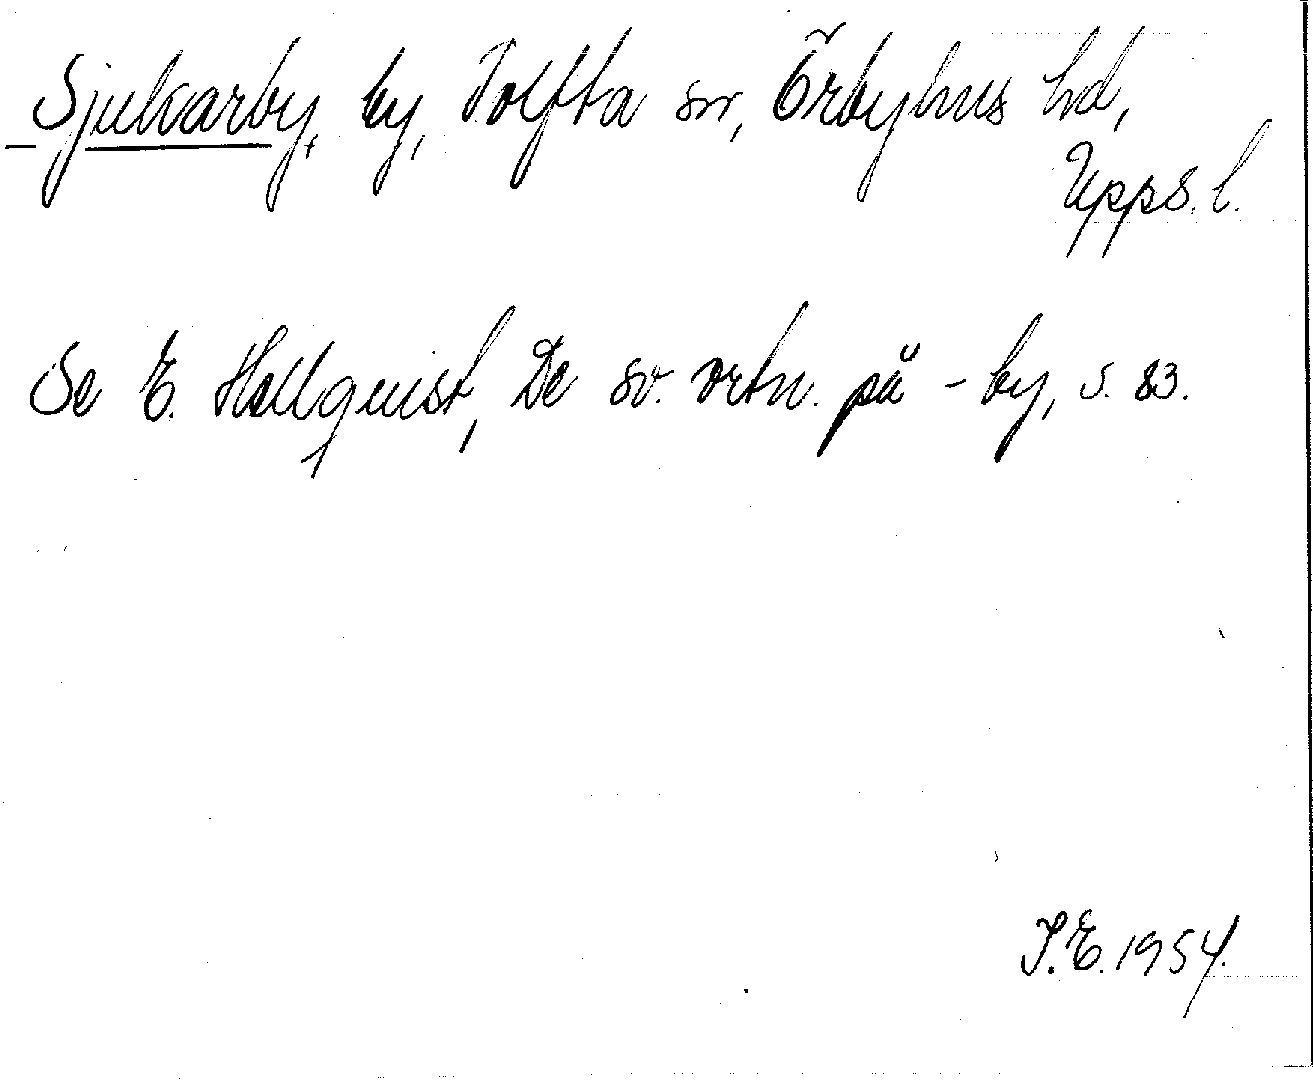 Sjukarby, by, Tolfta sn, Örbyhus hd,
Upps. l.
Se E. Hellquist, De sv. ortn. på -by, s. 83.
I.E. 1954.